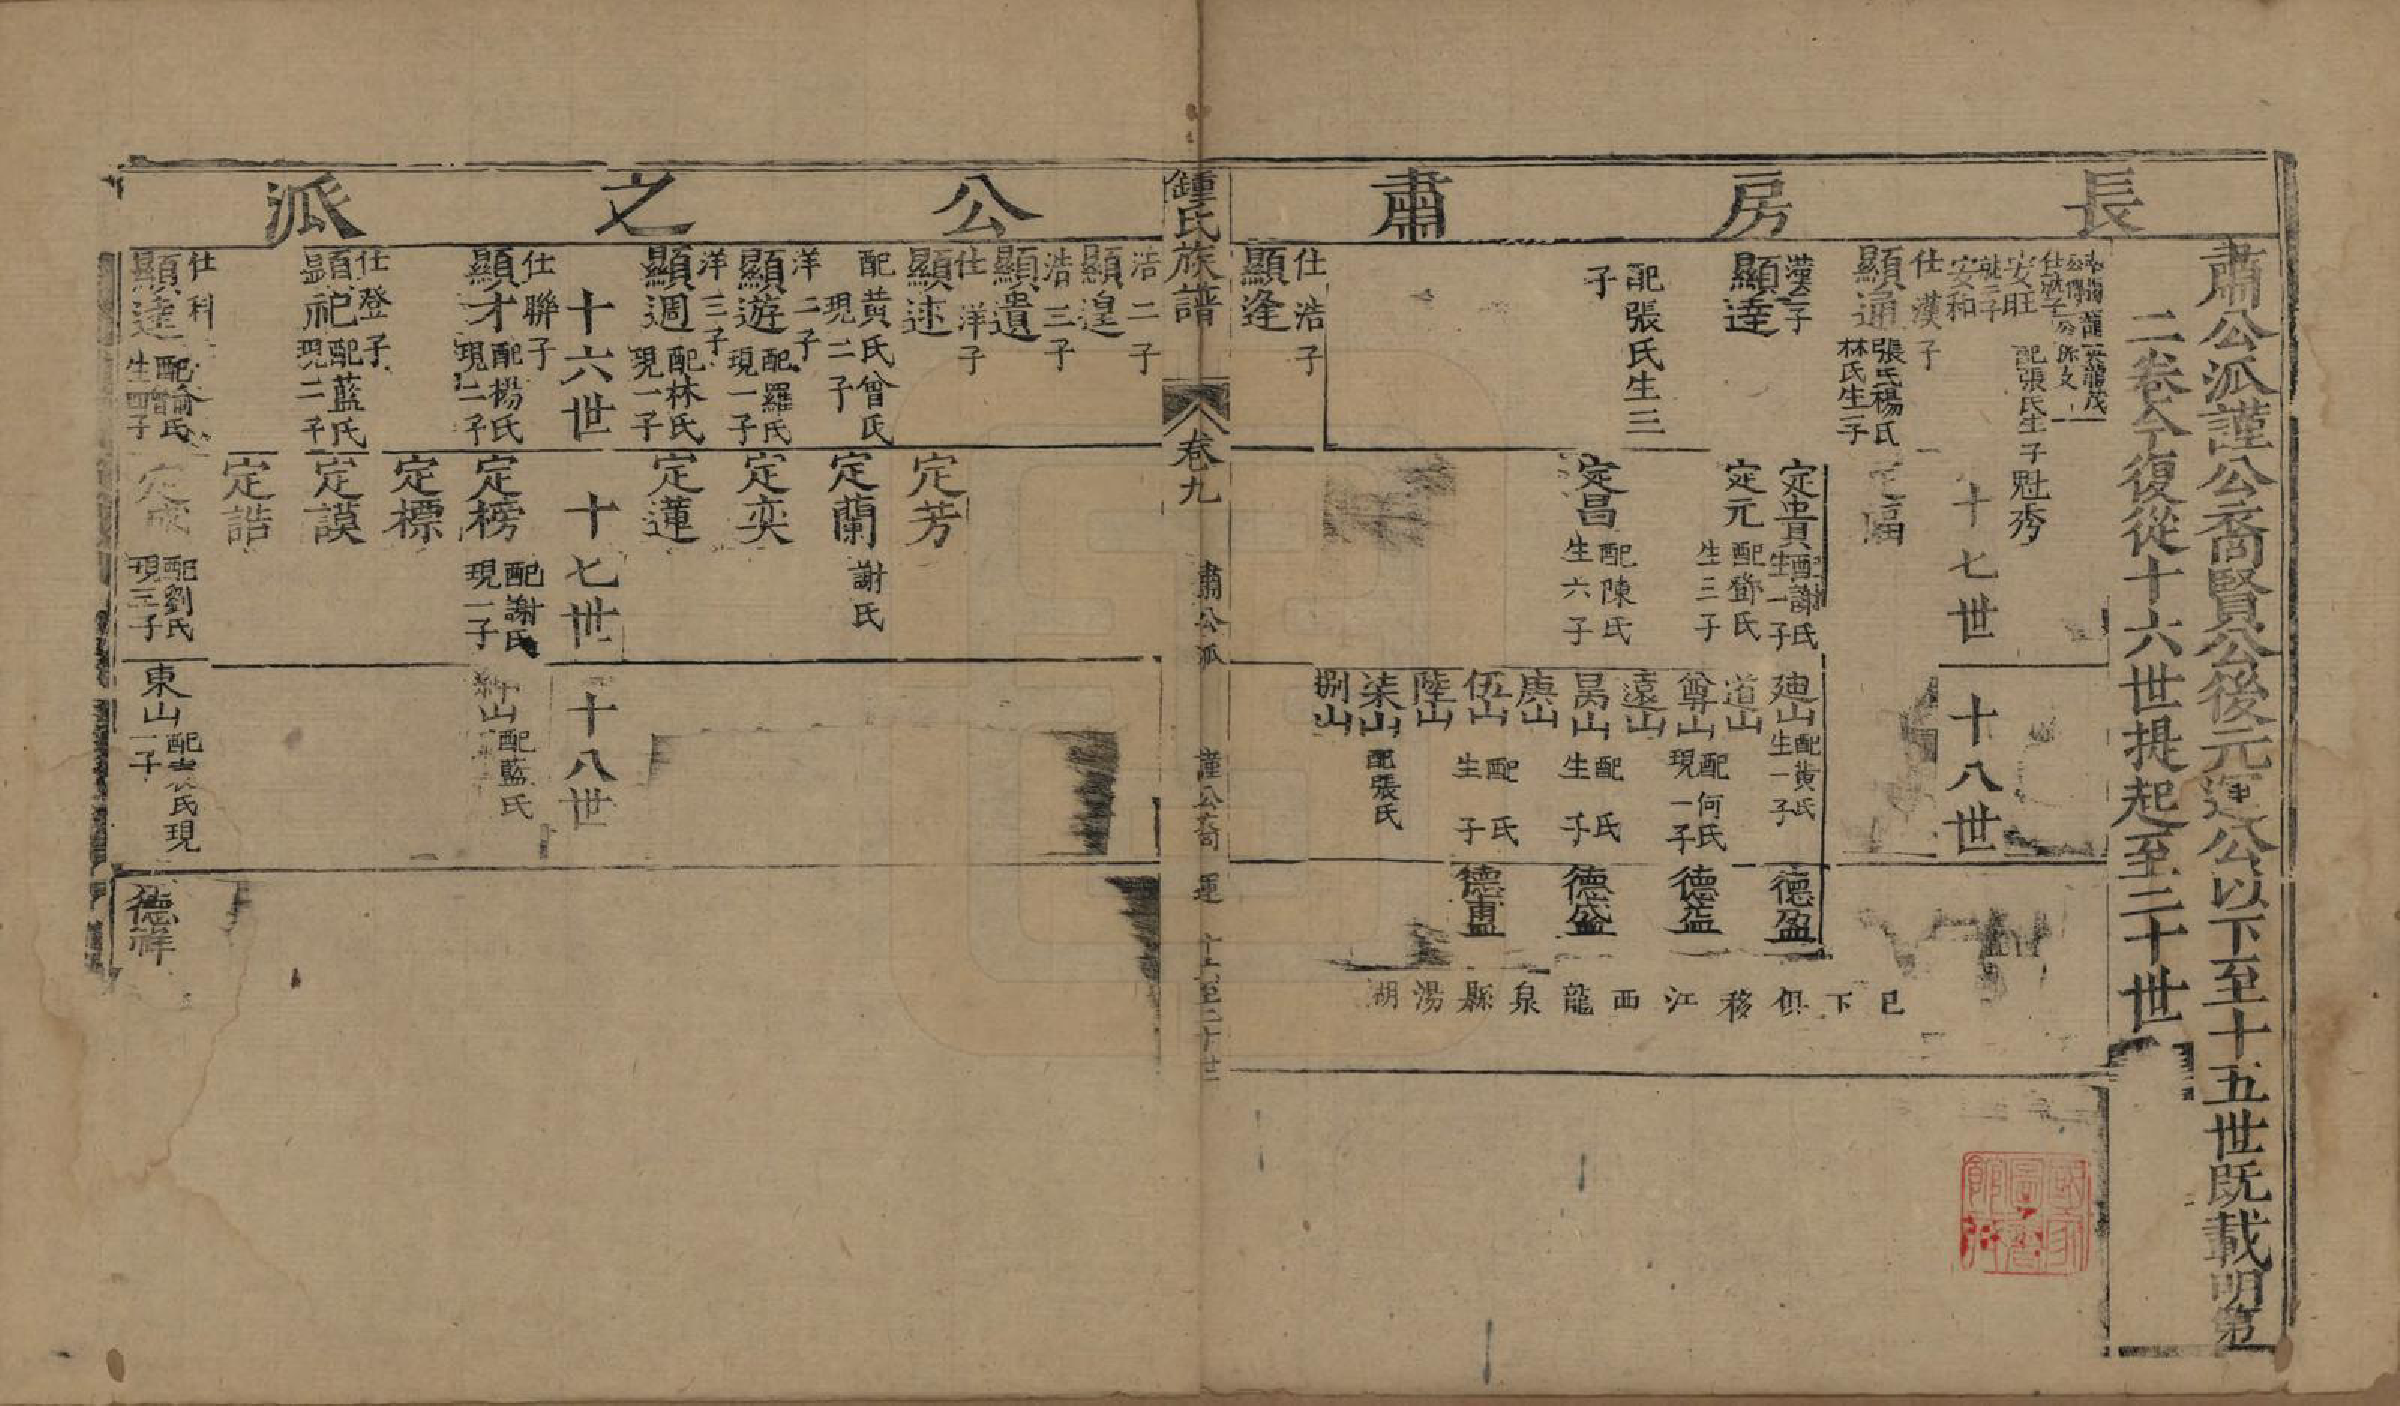 長房肅公之派
肅公派謹公裔賢公後元運公以下至十五世既載明第
二卷今復從十六世提起至二十世
安旺
配張氏生子魁秀
就二子
安和
十七世
十八世
仕漢子
顯通
張氏楊氏
林氏生二子
漢二子
顯達
配張氏生三
子
定貴
配謝氏
生一子
定元
配鄧氏
生三子
定昌
配陳氏
生六子
廸山
配黄氏
生一子
道山
尊山
配何氏
現一子
遠山
昺山
配氏
生子
庚山
伍山
配氏
生子
陸山
柒山
配張氏
捌山
德盈
德盛
已下俱移江西龍泉縣湯湖
仕浩子
顯逢
鍾氏族譜
卷九
肅公派
謹公裔
運
十六至二十世
浩二子
顯遑
浩三子
顯遺
仕洋子
顯速
配黃氏曾氏
現二子
定芳
定蘭
謝氏
洋二子
顯遊
配羅氏
現一子
定奕
洋三子
顯週
配林氏
現一子
定蓮
十六世
十七世
十八世
仕聯子
顯才
配楊氏
現二子
定榜
配謝氏
現一子
配藍氏
定標
仕登子
顯祀
配藍氏
現二子
定謨
定誥
仕科
顯達
生四子
配劉氏
現三子
東山
一子
德祥
國家圖書館